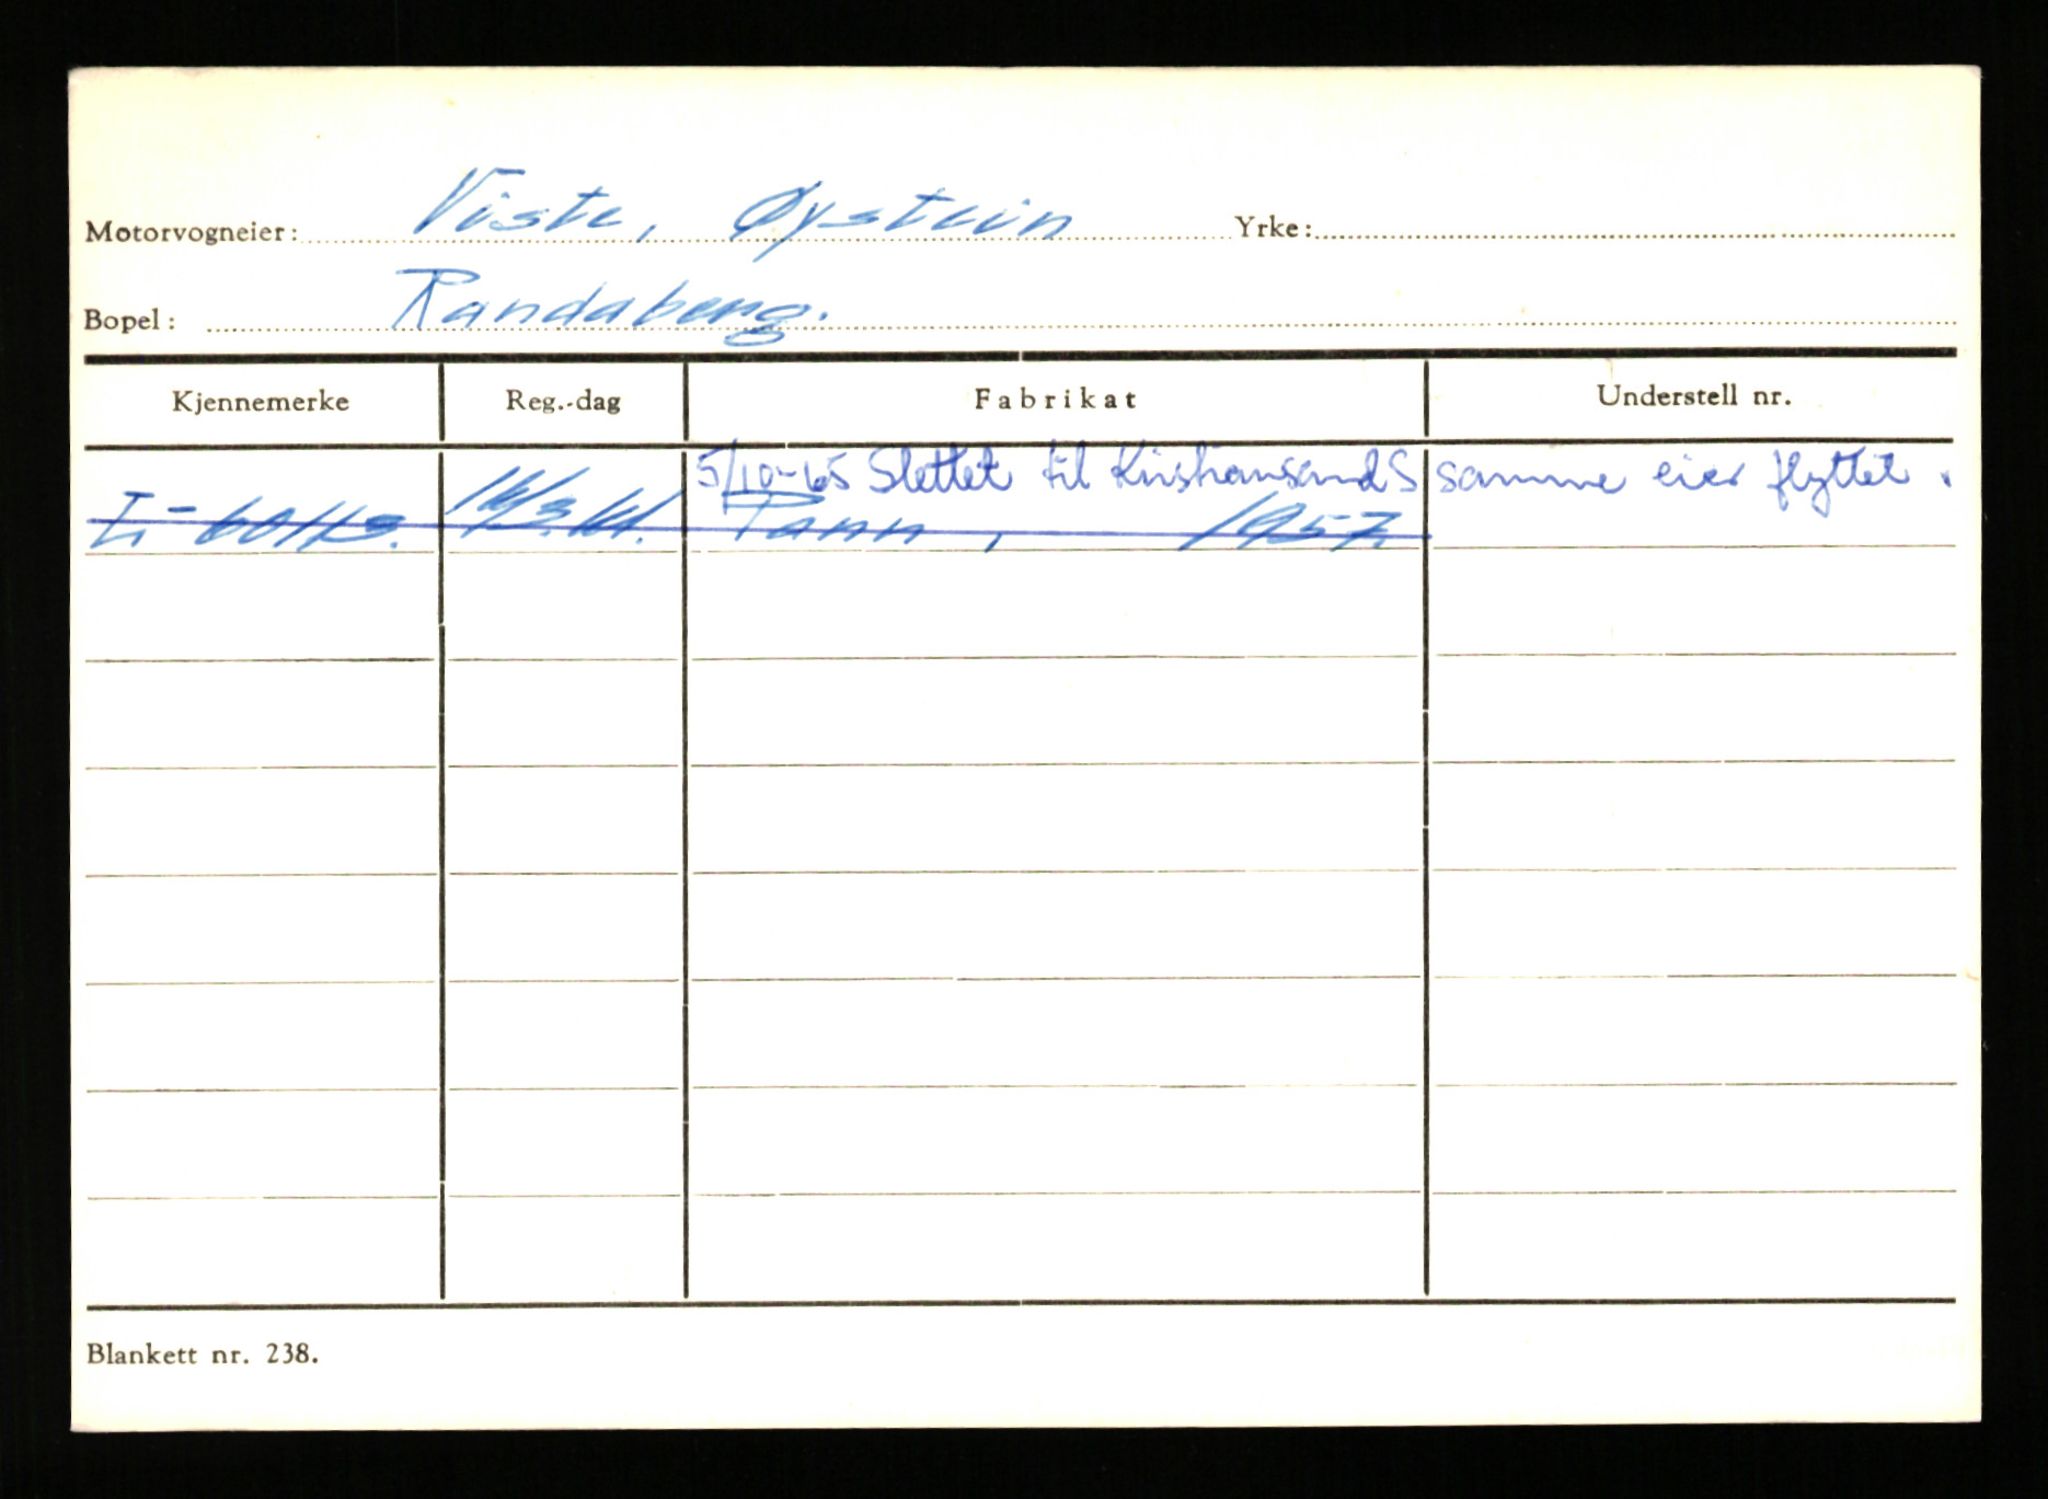 Motorvogneier: Viste, Øystein Yrke:
Bopel: Randaberg.
Kjennemerke Reg.-dag Fabrikat Understell nr.
5/10-65 Slettet til Kristiansand S samme eier flyttet.
Pann, 1957.
Blankett nr. 238.